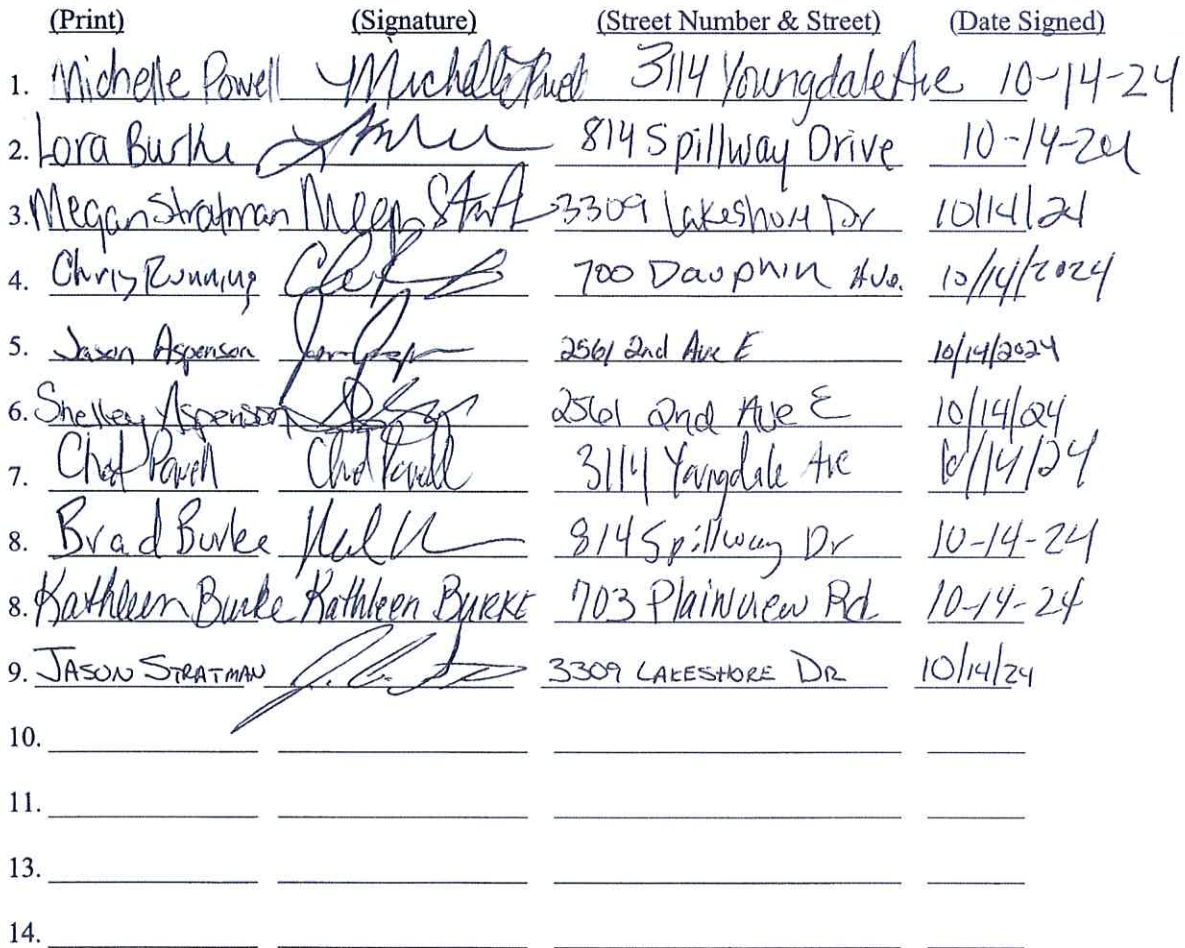 (Print) (Signature) (Street Number & Street) (Date Signed)
1. Michelle Powell Michelle Powell 3114 Youngdale Ave 10-14-24
2. Lora Burke 814 Spillway Drive 10-14-24
3. Megan Stratman Megan 3309 Lakeshore Dr 10/14/24
4. Chris Running 700 Dauphin Ave. 10/14/2024
5. Jason Aspenson 2561 2nd Ave E 10/14/2024
6. Shelley Aspenson 2561 2nd Ave E 10/14/24
7. Chad Powell Chad Powell 3114 Youngdale Ave 10/14/24
8. Brad Burke 814 Spillway Dr 10-14-24
8. Kathleen Burke Kathleen BURKE 703 Plainview Rd. 10-14-24
9. JASON STRATMAN 3309 LAKESHORE DR 10/14/24
10.
11.
13.
14.